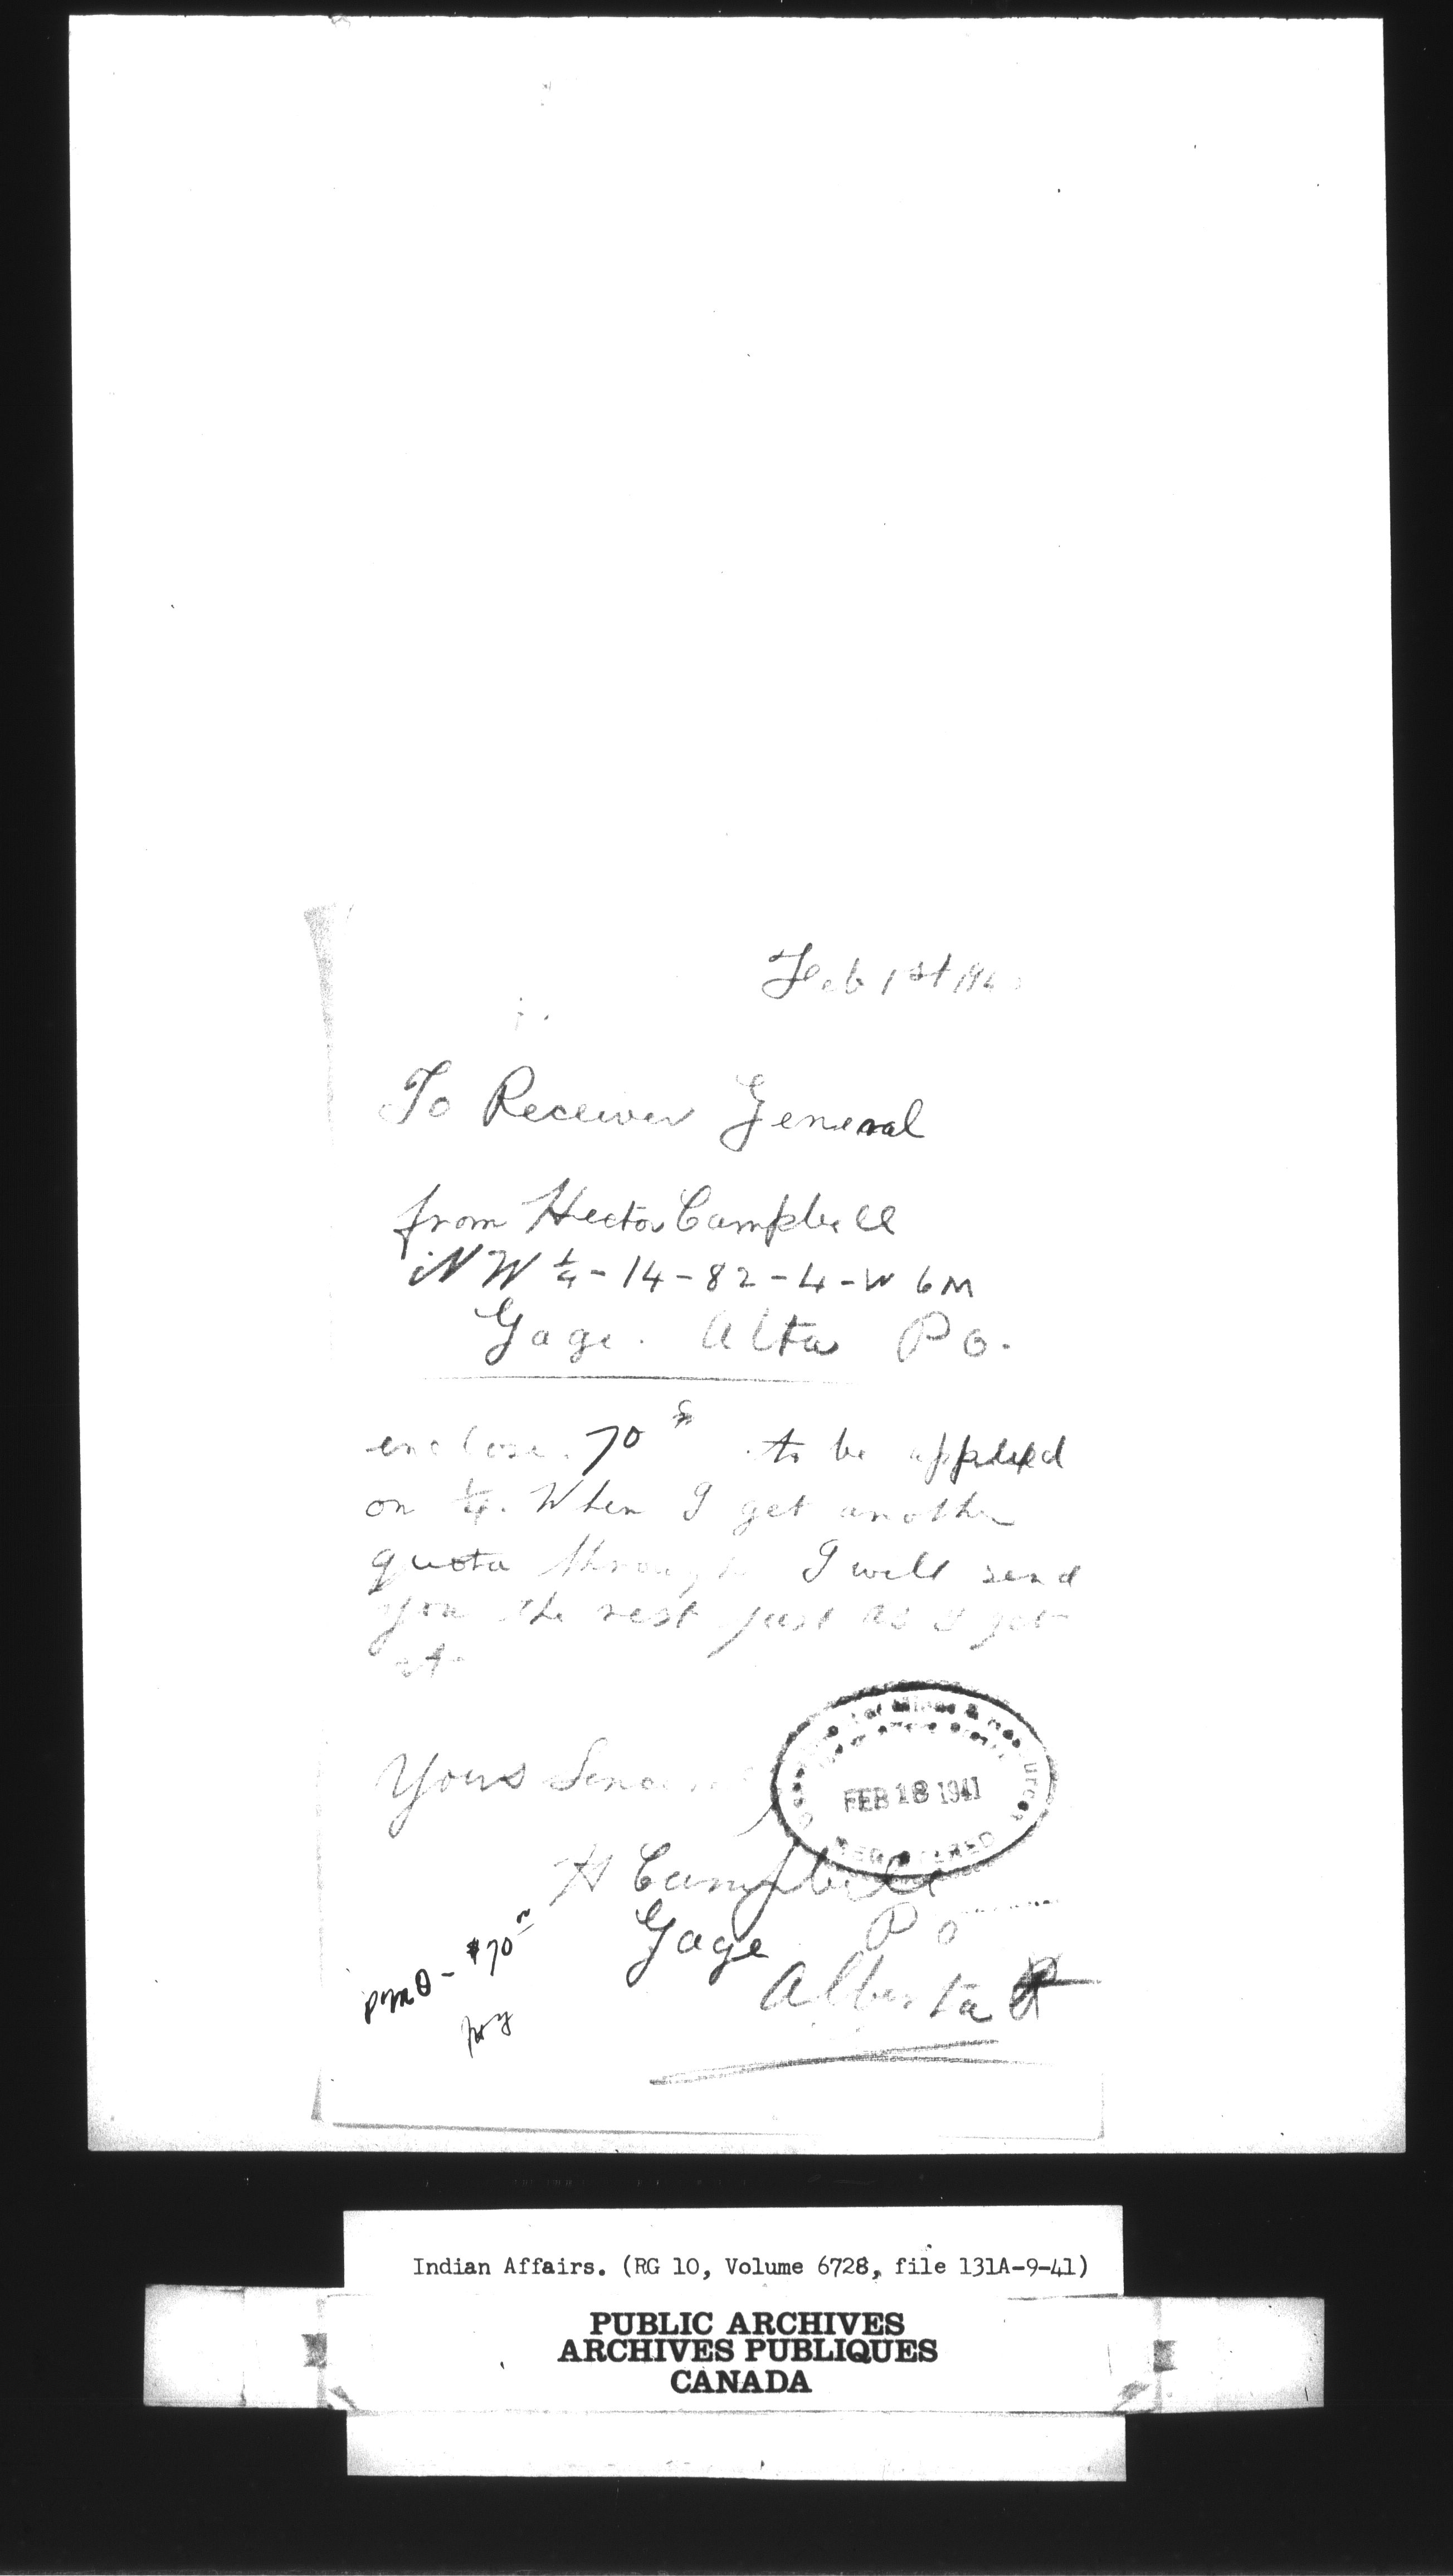 Feb 1st
To Receiver General
from Hector Campbell
NW 1/4 - 14 - 82 - 4 - W 6 M
Gage. Alta P O.
enclose 70 to be applied
on 1/4. When I get another
quota through I will send
you the rest just as I get
it
Yours
FEB 18 1941
H Campbell
Gage P O
Alberta
$70
Indian Affairs. (RG 10, Volume 6728, file 131A-9-41)
PUBLIC ARCHIVES
ARCHIVES PUBLIQUES
CANADA